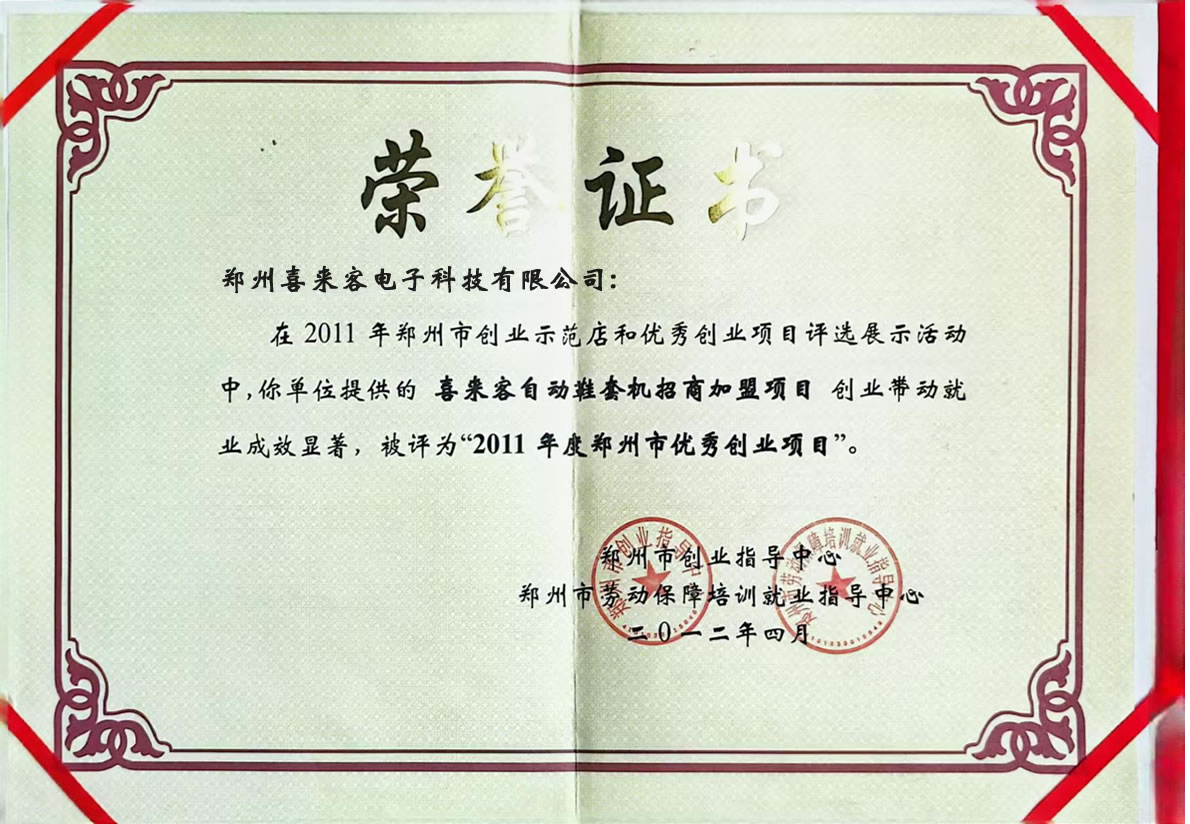 荣誉证书
郑州喜来客电子科技有限公司：
在2011年郑州市创业示范店和优秀创业项目评选展示活动
中，你单位提供的 喜来客自动鞋套机招商加盟项目 创业带动就
业成效显著，被评为“2011年度郑州市优秀创业项目”。
郑州市创业指导中心
郑州市劳动保障培训就业指导中心
二0一二年四月
郑州市创业指导中心
郑州市劳动保障培训就业指导中心